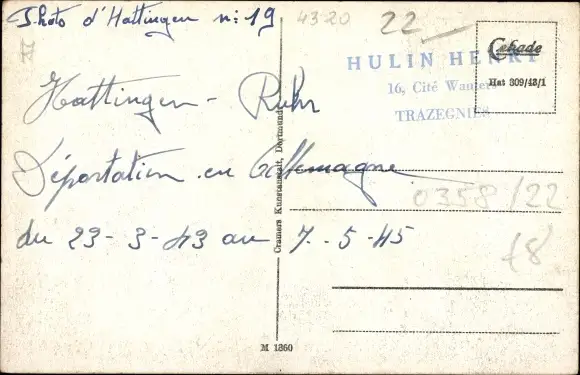 Photo d'Hattingen n: 19
4320
22
Cekade
Hat 309/43/1
HULIN HENRY
16, Cité Waniers
TRAZEGNIES
Hattingen - Ruhr
Déportation en Allemagne
0358/22
du 23-3-43 au 7.-5-45
18
Cramers Kunstanstalt, Dortmund
M 1860